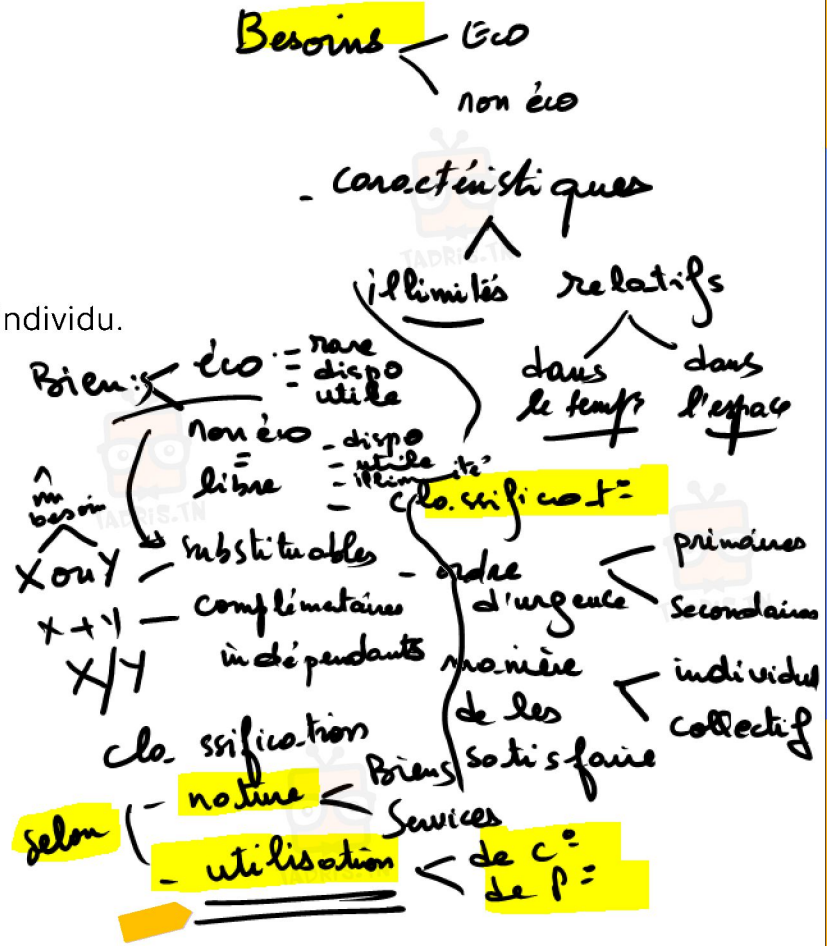 Besoins
Eco
non éco
- caractéristiques
TADRIS.TN
illimités
relatifs
dans
le temps
dans
l'espace
ndividu.
Biens
éco
- rare
- dispo
- utile
non éco
=
libre
- dispo
- utile
- illimité
TADRIS.TN
m̂
besoin
X ou Y
substituables
X + Y
complémentaires
X/Y
indépendants
- classificat°
- ordre
d'urgence
primaires
secondaires
manière
de les
satisfaire
individuel
collectif
classification
selon
- nature
Biens
Services
- utilisation
de c°
de p°